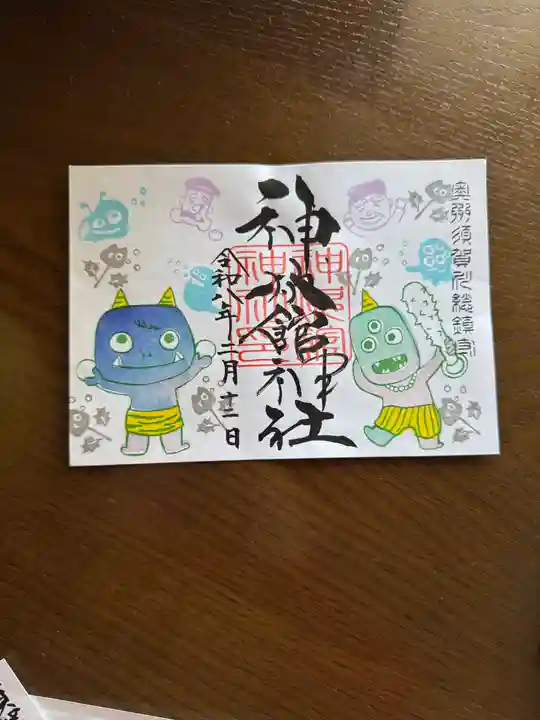 奥州須賀川総鎮守
神炊館神社
神炊館
神社印
令和八年二月十三日